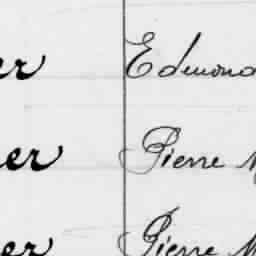 er Edmond
er Pierre M
er Pierre M